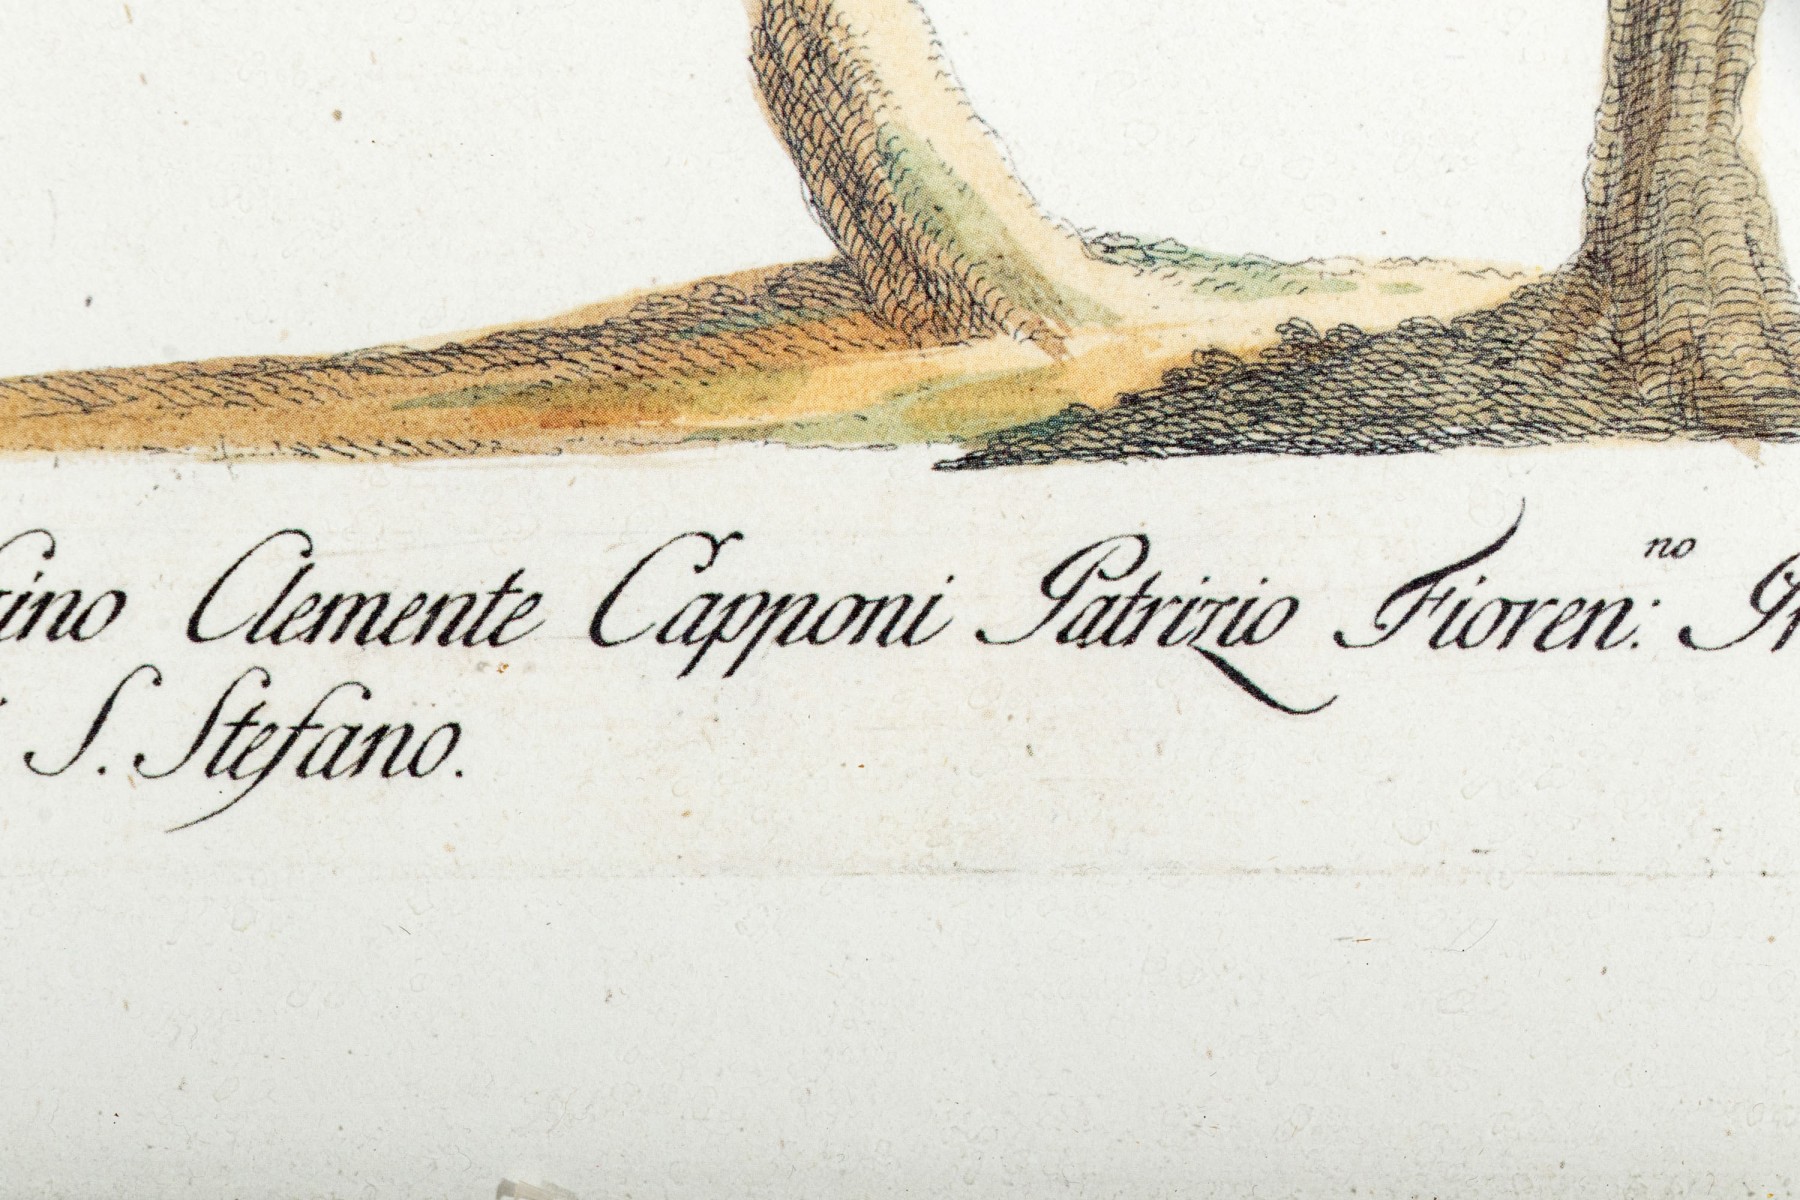 Clemente Capponi Patrizio Fioren:no
S. Stefano.